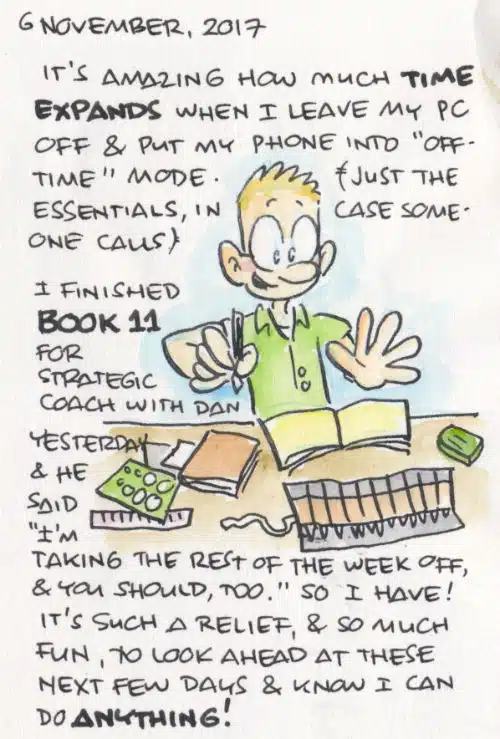 6 NOVEMBER, 2017
IT'S AMAZING HOW MUCH TIME
EXPANDS WHEN I LEAVE MY PC
OFF & PUT MY PHONE INTO "OFF-
TIME" MODE. {JUST THE
ESSENTIALS, IN CASE SOME-
ONE CALLS}
I FINISHED
BOOK 11
FOR
STRATEGIC
COACH WITH DAN
YESTERDAY
& HE
SAID
"I'M
TAKING THE REST OF THE WEEK OFF,
& YOU SHOULD, TOO." SO I HAVE!
IT'S SUCH A RELIEF, & SO MUCH
FUN, TO LOOK AHEAD AT THESE
NEXT FEW DAYS & KNOW I CAN
DO ANYTHING!